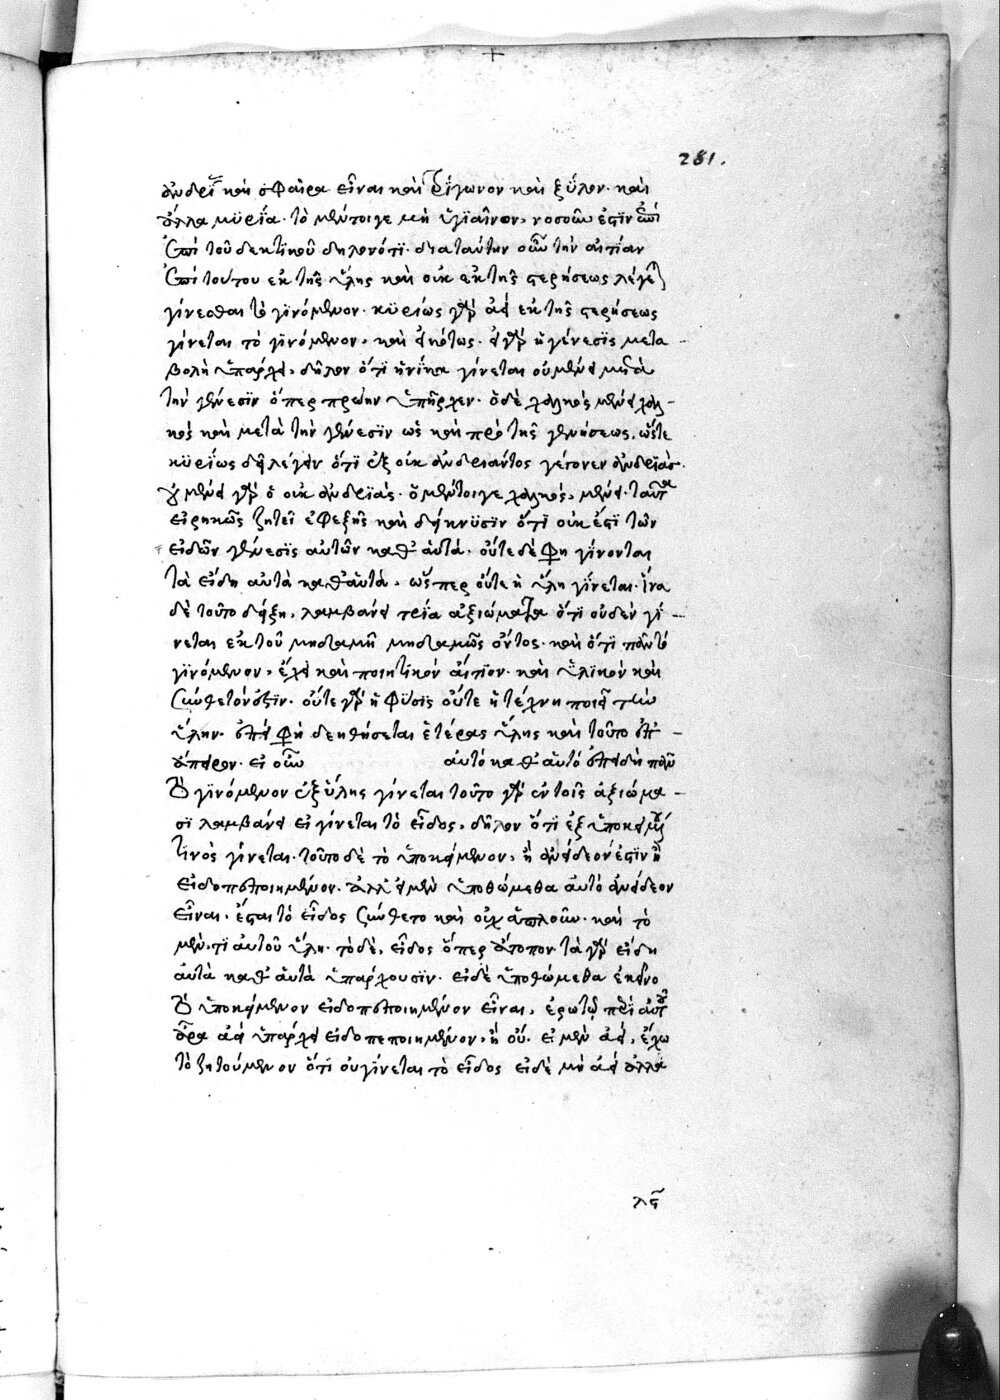 281.
ἀνδρι καὶ σφαῖρα εἶναι καὶ τρίγωνον καὶ ξύλον· καὶ
ἄλλα μϋρία· τὸ μέντοιγε μὴ ὑγιαῖνον, νοσοῦν ἐστὶν ἐπὶ
ἐπὶ τοῦ δεκτϊκοῦ δηλονότϊ· διαταύτην οὖν τὴν αἰτίαν
ἐπὶ τούτου ἐκ τῆς ὕλης καὶ οὐκ ἐκ τῆς στερήσεως λέγει
γίνεσθαι τὸ γϊνόμενον· κϋρίως γὰρ ἀεὶ ἐκ τῆς στερήσεως
γίνεται τὸ γϊνόμενον, καὶ εἰκότως· εἰ γὰρ ἡ γένεσϊς μετα-
βολὴ ὑπάρχει, δῆλον ὅτϊ ἡνίκα γίνεται οὐ μένει μετὰ
τὴν γένεσϊν ὅπερ πρώην ὑπῆρχεν· ὁ δὲ χαλκὸς μένει χαλ-
κὸς καὶ μετὰ τὴν γένεσϊν ὡς καὶ πρὸ τῆς γενήσεως, ὥστε
κϋρίως δεῖ λέγειν ὅτϊ ἐξ οὐκ ἀνδριάντος γέγονεν ἀνδριάς·
οὐ μένει γὰρ ὁ οὐκ ἀνδριάς· ὁ μέντοιγε χαλκὸς, μένει· ταῦτα
εἰρηκὼς ζητεῖ ἐφεξῆς καὶ δείκνϋσϊν ὅτϊ οὐκ ἔστϊ τῶν
εἰδῶν γένεσϊς αὐτῶν καθ' αὑτά· οὔτε δὲ φθείρονται
τὰ εἴδη αὐτὰ καθ' αὑτὰ, ὥσπερ οὔτε ἡ ὕλη γίνεται· ἵνα
δὲ τοῦτο δείξη, λαμβάνει τρία ἀξιώματα ὅτϊ οὐδὲν γί-
νεται ἐκ τοῦ μηδαμῆ μηδαμῶς ὄντος· καὶ ὅτϊ πᾶν τὸ
γϊνόμενον, ἔχει καὶ ποιητϊκὸν αἴτϊον· καὶ ὑλϊκὸν καὶ
σύνθετόν ἐστϊν· οὔτε γὰρ ἡ φύσϊς οὔτε ἡ τέχνη ποιεῖ τὴν
ὕλην· ἐπεὶ δεηθήσεται ἑτέρας ὕλης καὶ τοῦτο ἐπ' -
ἄπειρον· εἰ οὖν αὐτὸ καθ' αὑτὸ ἐπειδὴ πᾶν
τὸ γϊνόμενον ἐξ ὕλης γίνεται τοῦτο γὰρ ἐν τοῖς ἀξιώμα-
σϊ λαμβάνει εἰ γίνεται τὸ εἶδος, δῆλον ὅτϊ ἐξ ὑποκειμένου
τϊνὸς γίνεται· τοῦτο δὲ τὸ ὑποκείμενον, ἢ ἀνείδεόν ἐστϊν ἢ
εἰδοπεποιημένον· ἀλλ' εἰ μὲν ὑποθώμεθα αὐτὸ ἀνείδεον
εἶναι, ἔσται τὸ εἶδος σύνθετο καὶ οὐχ ἁπλοῦν· καὶ τὸ
μέν τι αὐτοῦ ὕλη· τὸ δὲ, εἶδος ὅπερ ἄτοπον· τὰ γὰρ εἴδη
αὐτὰ καθ' αὑτὰ ὑπάρχουσϊν· εἰ δὲ ὑποθώμεθα ἐκεῖνο
τὸ ὑποκείμενον εἰδοπεποιημένον εἶναι, ἐρωτῶ περὶ αὐτοῦ
ἆρα ἀεὶ ὑπάρχει εἰδοπεποιημένον, ἢ οὔ· εἰ μὲν ἀεὶ, ἔχω
τὸ ζητούμενον ὅτϊ οὐ γίνεται τὸ εἶδος εἰ δὲ μὴ ἀεὶ ἀλλὰ
λϛ